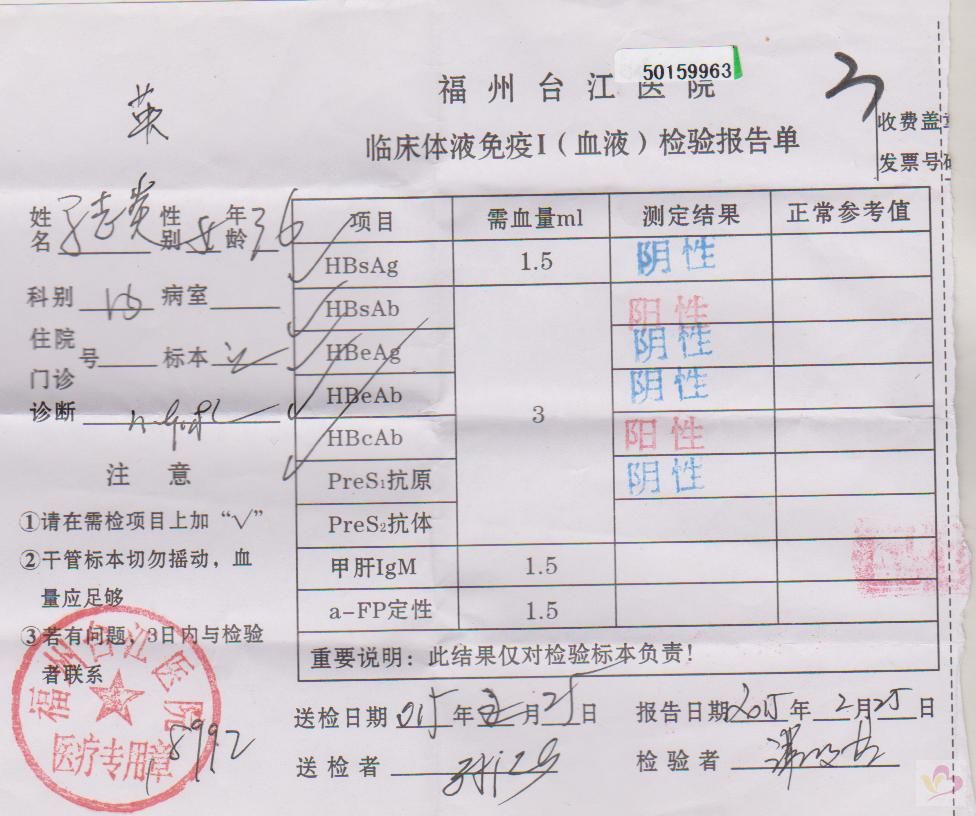 50159963
福州台江医院
临床体液免疫I（血液）检验报告单
收费盖章
发票号码
英
姓名 性别 女 年龄 36
科别 内 病室
住院
门诊 号 标本
诊断
注 意
①请在需检项目上加“√”
②干管标本切勿摇动，血
量应足够
③若有问题，3日内与检验
者联系
项目 需血量ml 测定结果 正常参考值
HBsAg 1.5 阴性
HBsAb 阳性
HBeAg 阴性
HBeAb 3 阴性
HBcAb 阳性
PreS₁抗原 阴性
PreS₂抗体
甲肝IgM 1.5
a-FP定性 1.5
重要说明：此结果仅对检验标本负责！
送检日期 015年 2月25日 报告日期 2015年 2月25日
送检者 检验者
福州台江医院
医疗专用章
18992